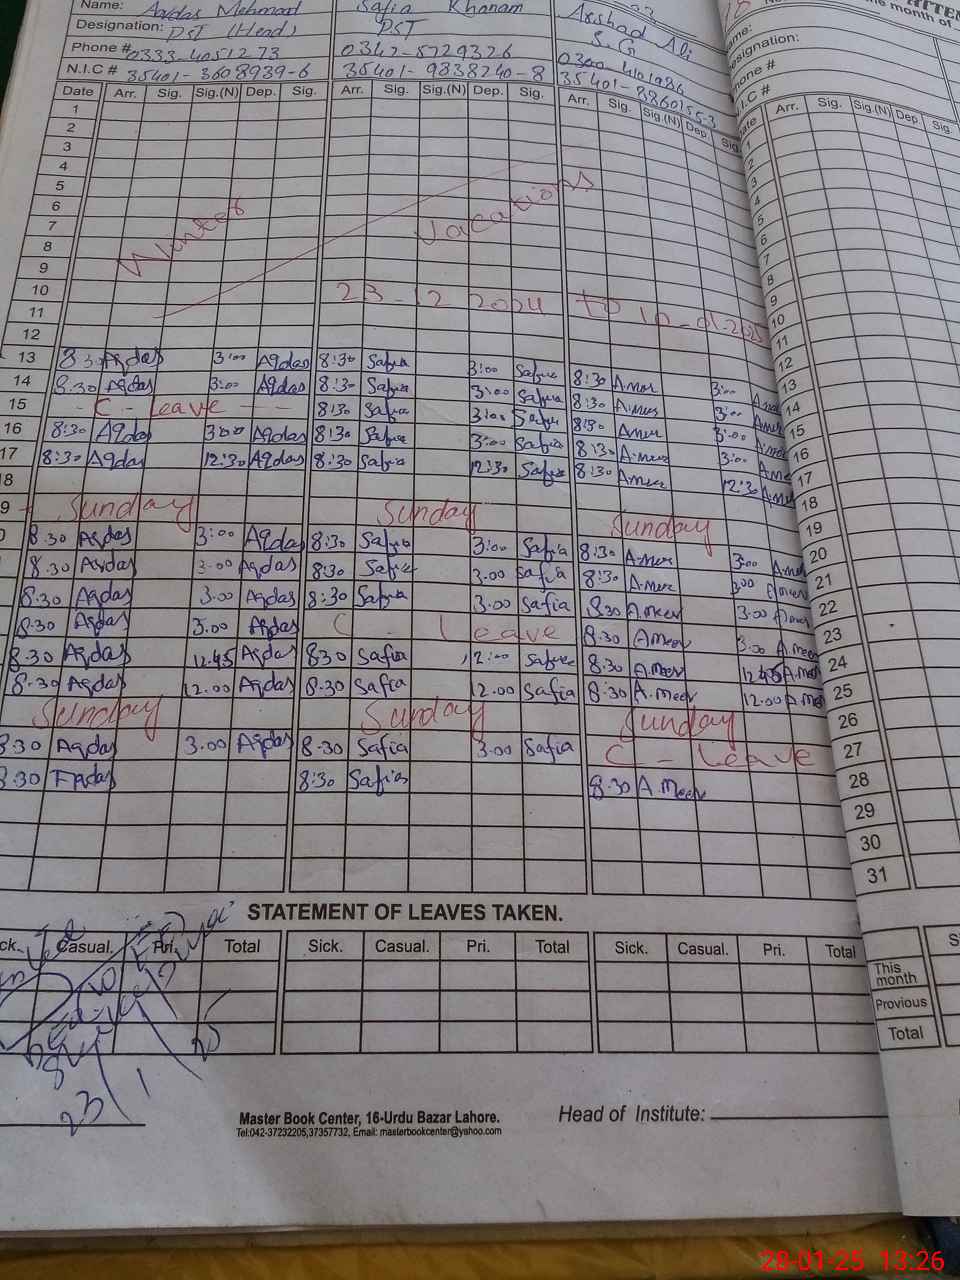 Name: Aqdas Mehmood Safia Khanam Arshad Ali
Designation: PST (Head) PST S.G
Phone # 0333-4051273 0342-8729326 0300-4101986
N.I.C # 35401-3608939-6 35401-9838240-8 35401-8860155-3
Date Arr. Sig. Sig.(N) Dep. Sig. Arr. Sig. Sig.(N) Dep. Sig. Arr. Sig. Sig.(N) Dep. Sig.
1
2
3
4
5
6
7
8
9
10
11
12
Winter Vacations
23-12 2024 to 10-01-2025
13 8:30 Aqdas 3:00 Aqdas 8:30 Safia 3:00 Safia 8:30 Ameer 3:00 Ameer
14 8.30 Aqdas 3:00 Aqdas 8:30 Safia 3:00 Safia 8:30 Ameer 3:00 Ameer
15 - C - Leave - - 8:30 Safia 3:00 Safia 8:30 Ameer 3:00 Ameer
16 8:30 Aqdas 3:00 Aqdas 8:30 Safia 3:00 Safia 8:30 Ameer 3:00 Ameer
17 8:30 Aqdas 12:30 Aqdas 8:30 Safia 12:30 Safia 8:30 Ameer 12:30 Ameer
18
9 Sunday Sunday Sunday
8.30 Aqdas 3:00 Aqdas 8:30 Safia 3:00 Safia 8:30 Ameer 3:00 Ameer
8.30 Aqdas 3.00 Aqdas 8:30 Safia 3.00 Safia 8:30 Ameer 3:00 Ameer
8.30 Aqdas 3.00 Aqdas 8:30 Safia 3.00 Safia 8.30 Ameer 3.00 Ameer
8.30 Aqdas 3.00 Aqdas C - Leave 8.30 Ameer 3.00 Ameer
8.30 Aqdas 12.45 Aqdas 8.30 Safia 12:00 Safia 8.30 A.meer 12.45 A.meer
8.30 Aqdas 12.00 Aqdas 8.30 Safia 12.00 Safia 8.30 A.meer 12.00 A.meer
Sunday Sunday Sunday
8.30 Aqdas 3.00 Aqdas 8.30 Safia 3.00 Safia C - Leave
8.30 Aqdas 8:30 Safia 8.30 A.Meer
STATEMENT OF LEAVES TAKEN.
Sick. Casual. Pri. Total Sick. Casual. Pri. Total Sick. Casual. Pri. Total
23/1/25
Master Book Center, 16-Urdu Bazar Lahore.
Tel:042-37232205,37357732, Email: masterbookcenter@yahoo.com
Head of Institute:
the month of
Designation:
Arr. Sig. Sig.(N) Dep. Sig.
1
2
3
4
5
6
7
8
9
10
11
12
13
14
15
16
17
18
19
20
21
22
23
24
25
26
27
28
29
30
31
This month
Previous
Total
28-01-25 13:26